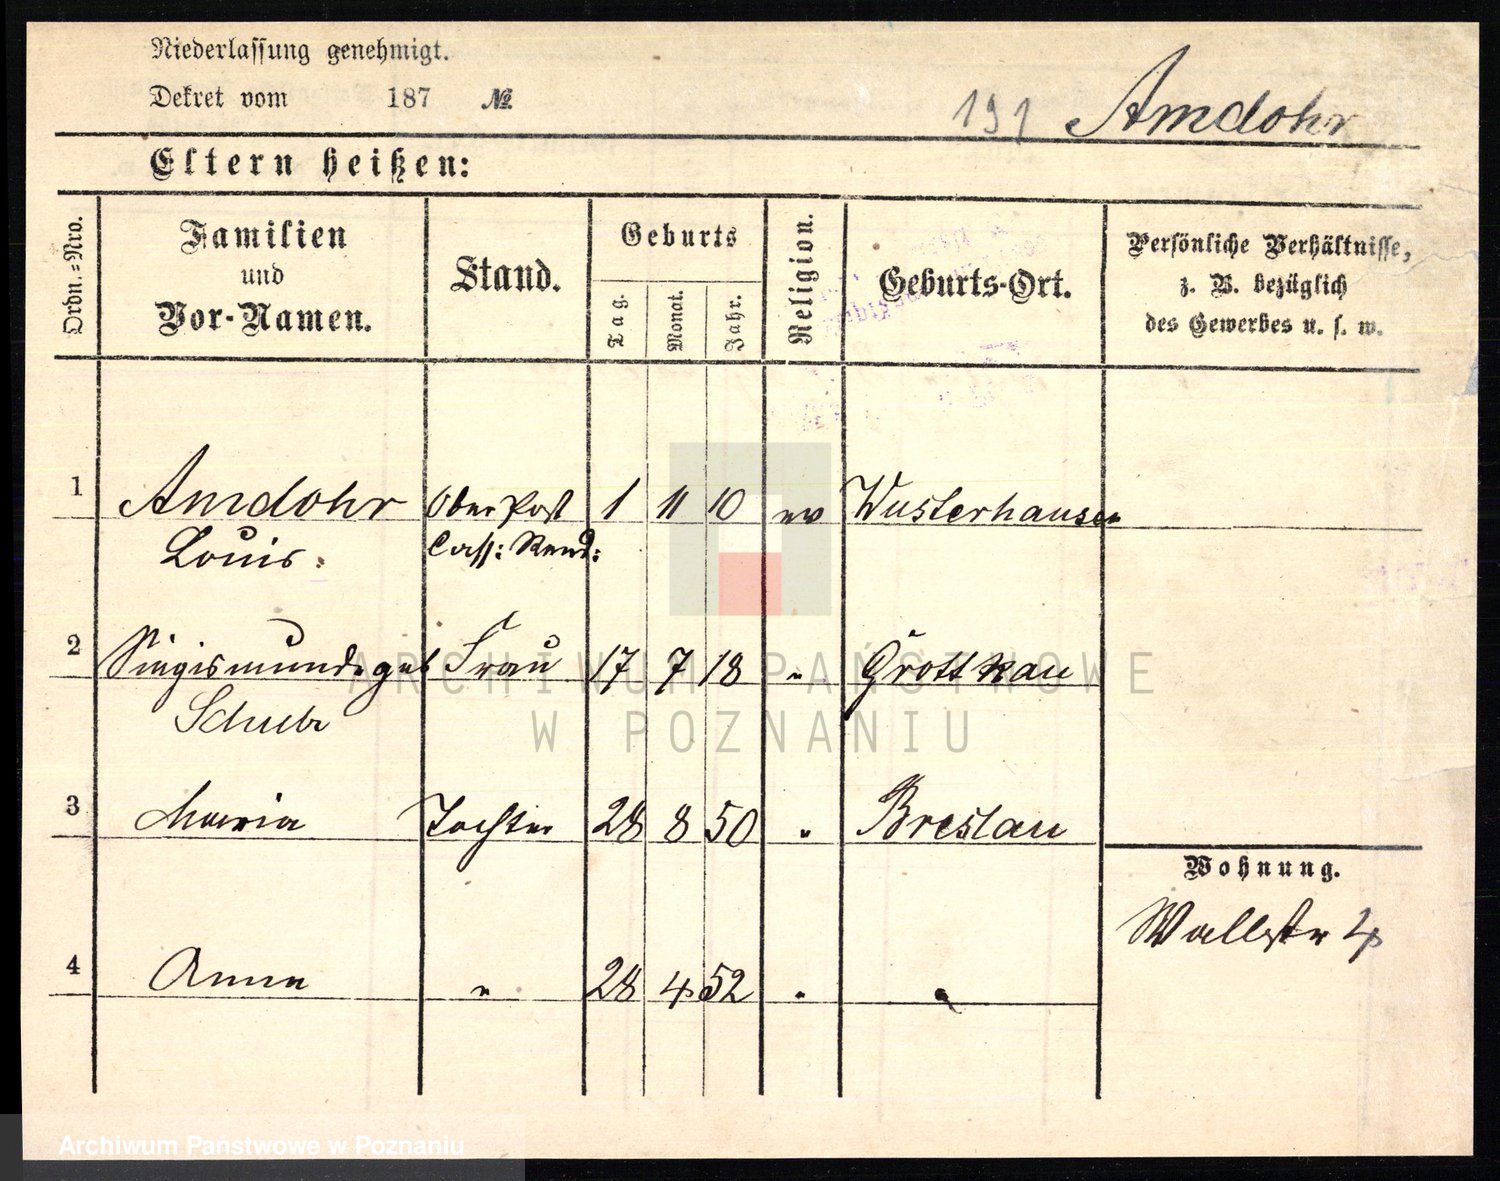 Niederlassung genehmigt.
Dekret vom 187 №
191 Amdohr
Eltern heißen:
Ordn.-Nro.
Familien
und
Vor-Namen.
Stand.
Geburts
Tag.
Monat.
Jahr.
Religion.
Geburts-Ort.
Persönliche Verhältnisse,
z. B. bezüglich
des Gewerbes u. s. w.
1 Amdohr Ober Post 1 11 10 ev Wusterhausen
Louis. Cass: Rend:
2 geb Frau 17 7 18 " Grottkau
3 Maria Tochter 28 8 50 " Breslau
Wohnung.
Wallstr 4
4 Anna " 28 4 52 " "
ARCHIWUM PAŃSTWOWE
W POZNANIU
Archiwum Państwowe w Poznaniu